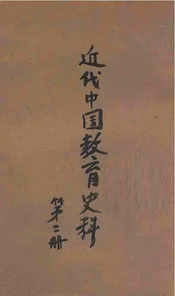 近代中国教育史料
第二册